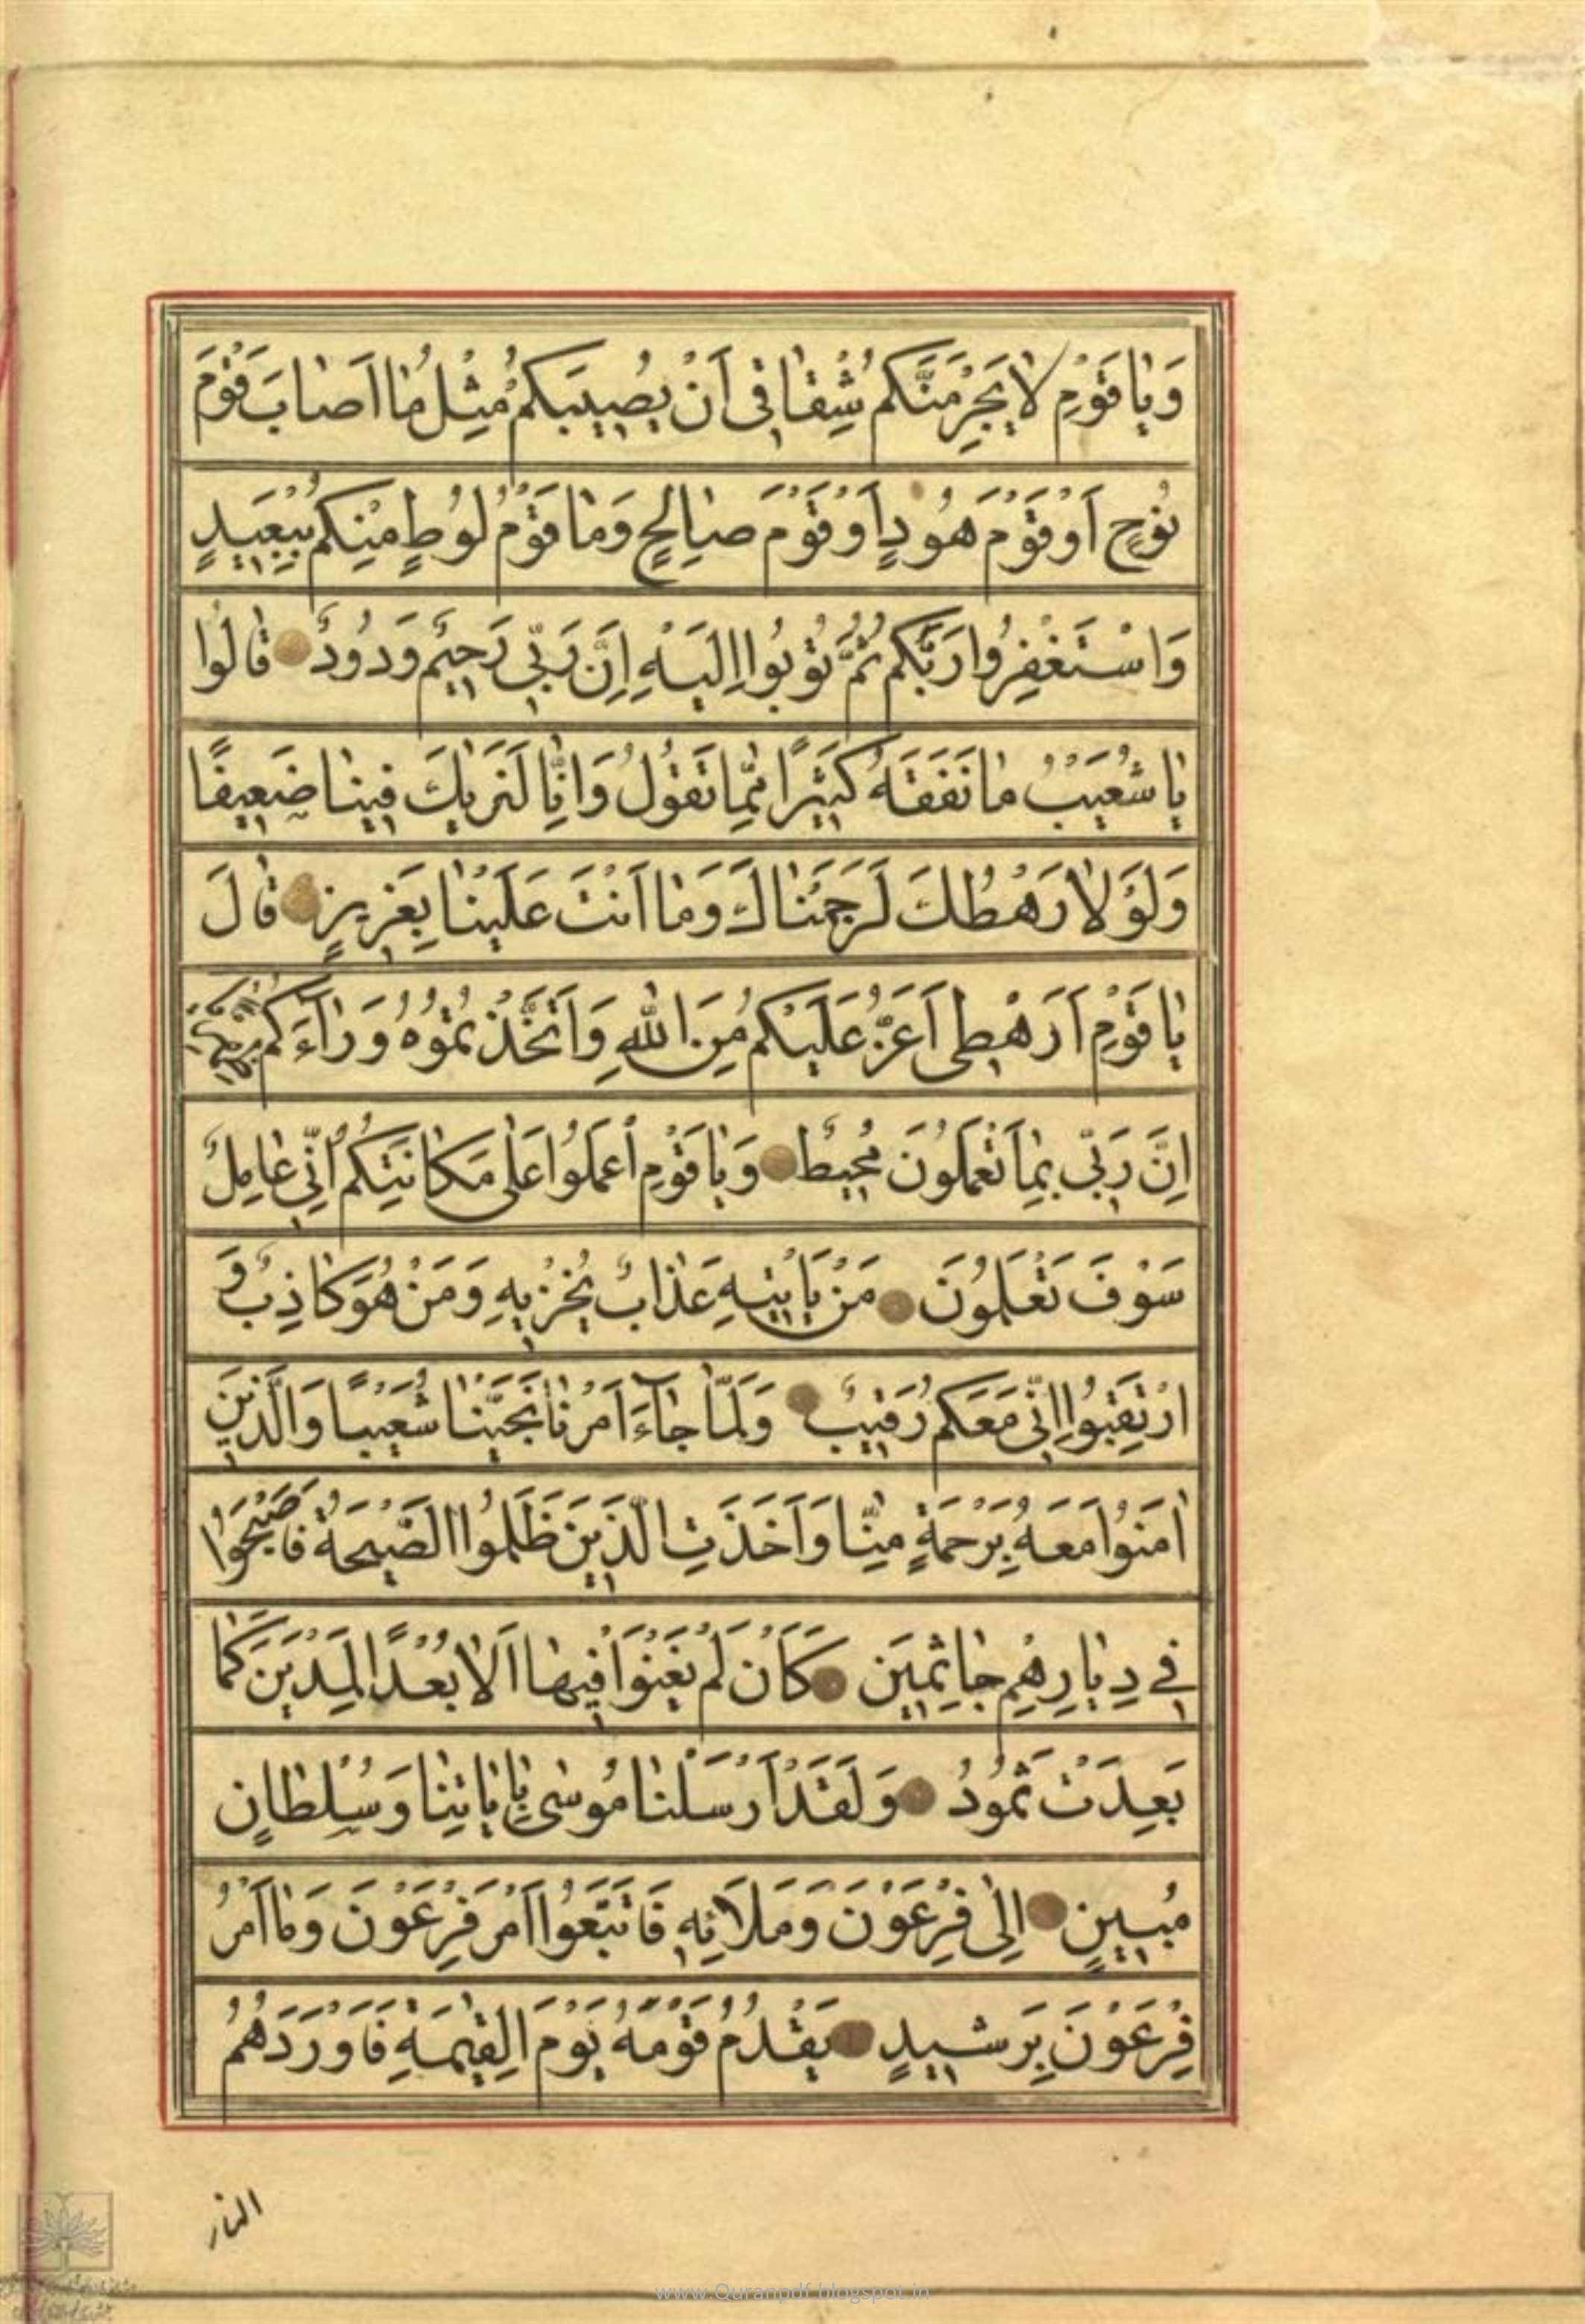 وَيٰا قَوْمِ لٰا يَجْرِمَنَّكُمْ شِقٰاقِى اَنْ يُصِيبَكُمْ مِثْلُ مٰا اَصٰابَ قَوْمَ
نُوحٍ اَوْ قَوْمَ هُودٍ اَوْ قَوْمَ صٰالِحٍ وَمٰا قَوْمُ لُوطٍ مِنْكُمْ بِبَعِيدٍ
وَاسْتَغْفِرُوا رَبَّكُمْ ثُمَّ تُوبُوا اِلَيْهِ اِنَّ رَبّى رَحيٌم وَدُودٌ قٰالُوا
يٰا شُعَيْبُ مٰا نَفْقَهُ كَثيرًا مِمّٰا تَقُولُ وَاِنّٰا لَنَريٰكَ فينٰا ضَعيفًا
وَلَوْلٰا رَهْطُكَ لَرَجَمْنٰاكَ وَمٰا اَنْتَ عَلَيْنٰا بِعَزيزٍ قٰالَ
يٰا قَوْمِ اَرَهْطى اَعَزُّ عَلَيْكُمْ مِنَ اللهِ وَاتَّخَذْتُمُوهُ وَرٰاءَكُمْ ظِهْرِيًّا
اِنَّ رَبّى بِمٰا تَعْمَلُونَ مُحيطٌ وَيٰا قَوْمِ اعْمَلُوا عَلٰى مَكٰانَتِكُمْ اِنّى عٰامِلٌ
سَوْفَ تَعْلَمُونَ مَنْ يَأْتيهِ عَذٰابٌ يُخْزيهِ وَمَنْ هُوَ كٰاذِبٌ وَ
ارْتَقِبُوا اِنّى مَعَكُمْ رَقيبٌ وَلَمّٰا جٰآءَ اَمْرُنٰا نَجَّيْنٰا شُعَيْبًا وَالَّذينَ
اٰمَنُوا مَعَهُ بِرَحْمَةٍ مِنّٰا وَاَخَذَتِ الَّذينَ ظَلَمُوا الصَّيْحَةُ فَاَصْبَحُوا
فى دِيٰارِهِمْ جٰاثِمينَ كَاَنْ لَمْ يَغْنَوْا فيهٰا اَلٰا بُعْدًا لِمَدْيَنَ كَمٰا
بَعِدَتْ ثَمُودُ وَلَقَدْ اَرْسَلْنٰا مُوسٰى بِاٰيٰاتِنٰا وَسُلْطٰانٍ
مُبينٍ اِلٰى فِرْعَوْنَ وَمَلَائِهِ فَاتَّبَعُوا اَمْرَ فِرْعَوْنَ وَمٰا اَمْرُ
فِرْعَوْنَ بِرَشيدٍ يَقْدُمُ قَوْمَهُ يَوْمَ الْقِيٰمَةِ فَاَوْرَدَهُمُ
النار
www.Quranpdf.blogspot.in